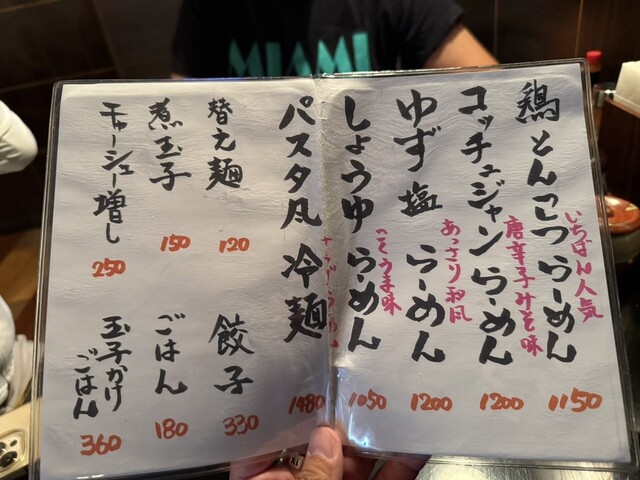 MIAMI
鶏とんこつらーめん
いちばん人気
1150
コッチュジャンらーめん
唐辛子みそ味
1200
ゆず塩らーめん
あっさり和風
1200
しょうゆらーめん
こくうま味
1050
パスタ風冷麺
1480
替え麺
120
煮玉子
150
チャーシュー増し
250
餃子
330
ごはん
180
玉子かけごはん
360